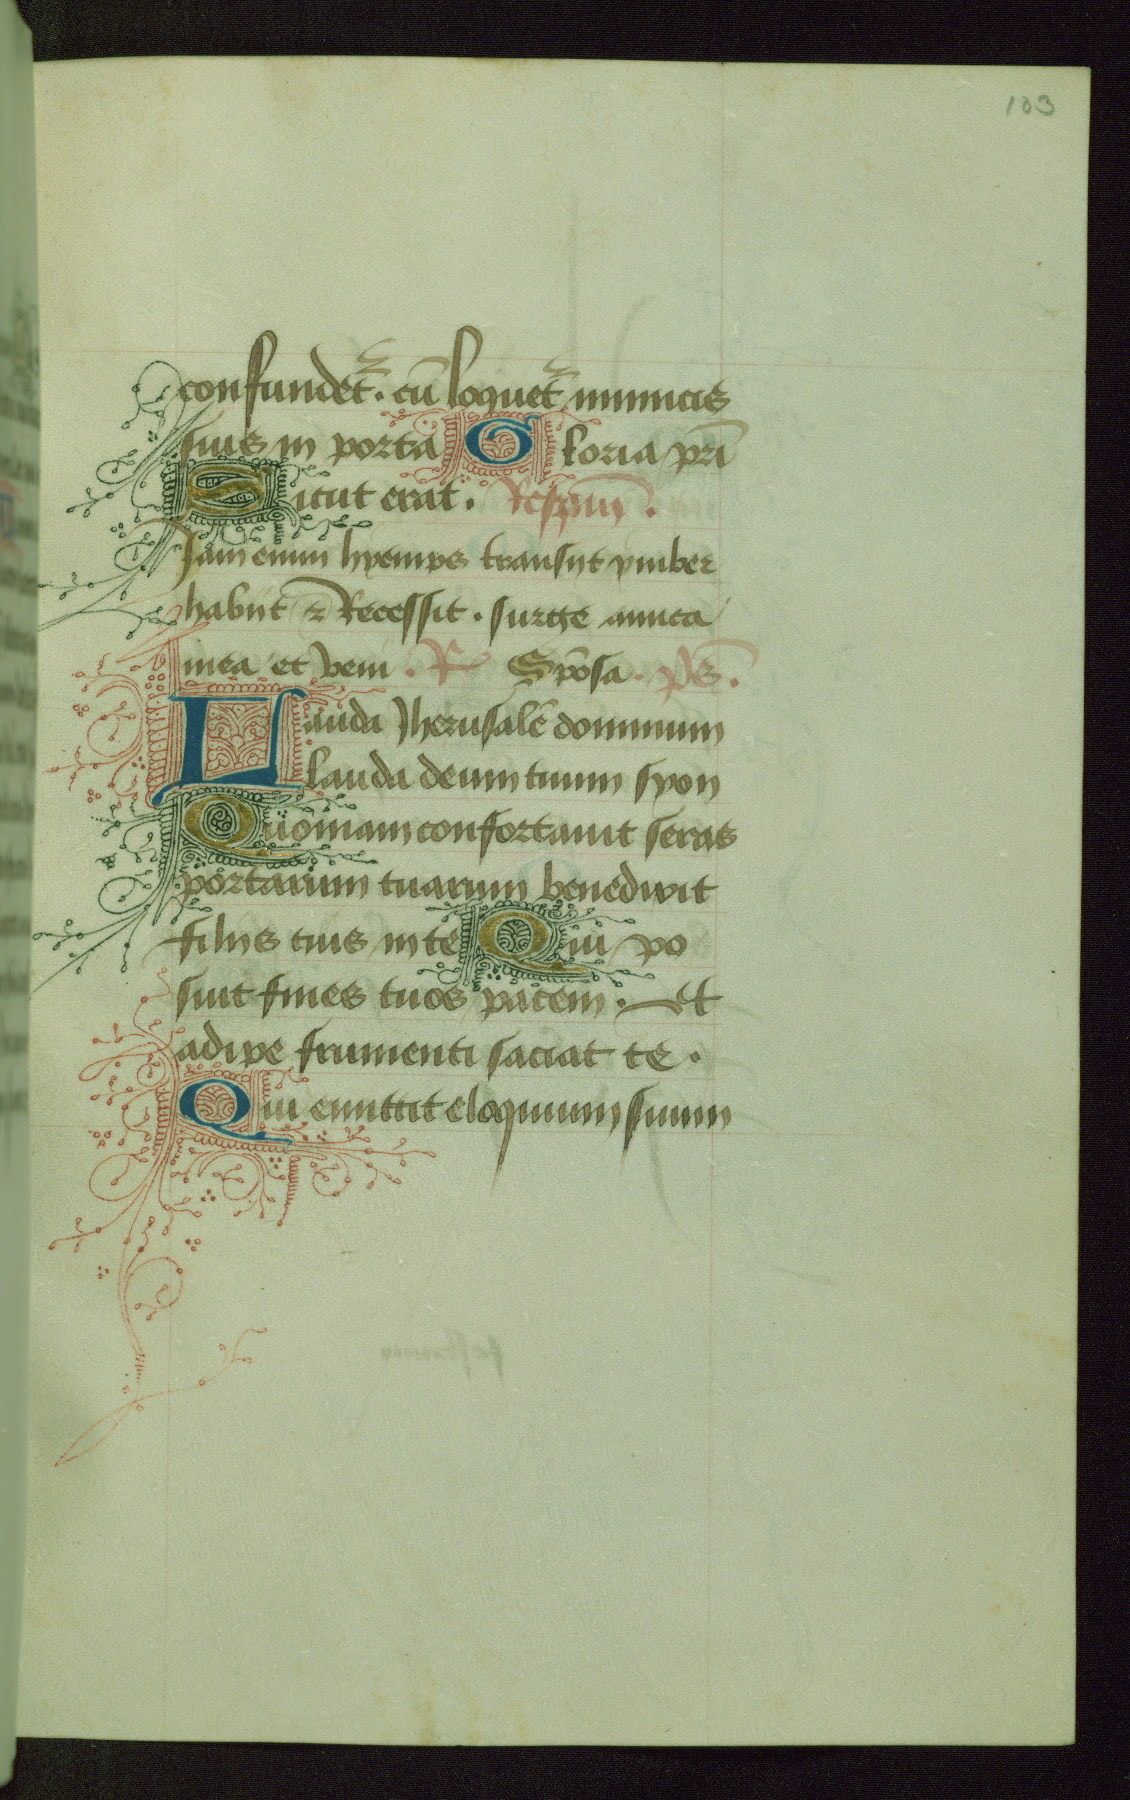 103
confundet᷑. cū loquet᷑ inimicis
suis in porta Gloria pr̄i
Sicut erat. Respōm̄.
Jam enim hyemps transijt ymber
habijt ⁊ Recessit. surge amica
mea et veni. R Spōsa. ps̄.
Lauda Jherusalē dominum
lauda deum tuum syon
Quoniam confortauit seras
portarum tuarum benedixit
filijs tuis in te Qui po
suit fines tuos pacem. Et
adipe frumenti saciat te.
Qui emittit eloquium suum